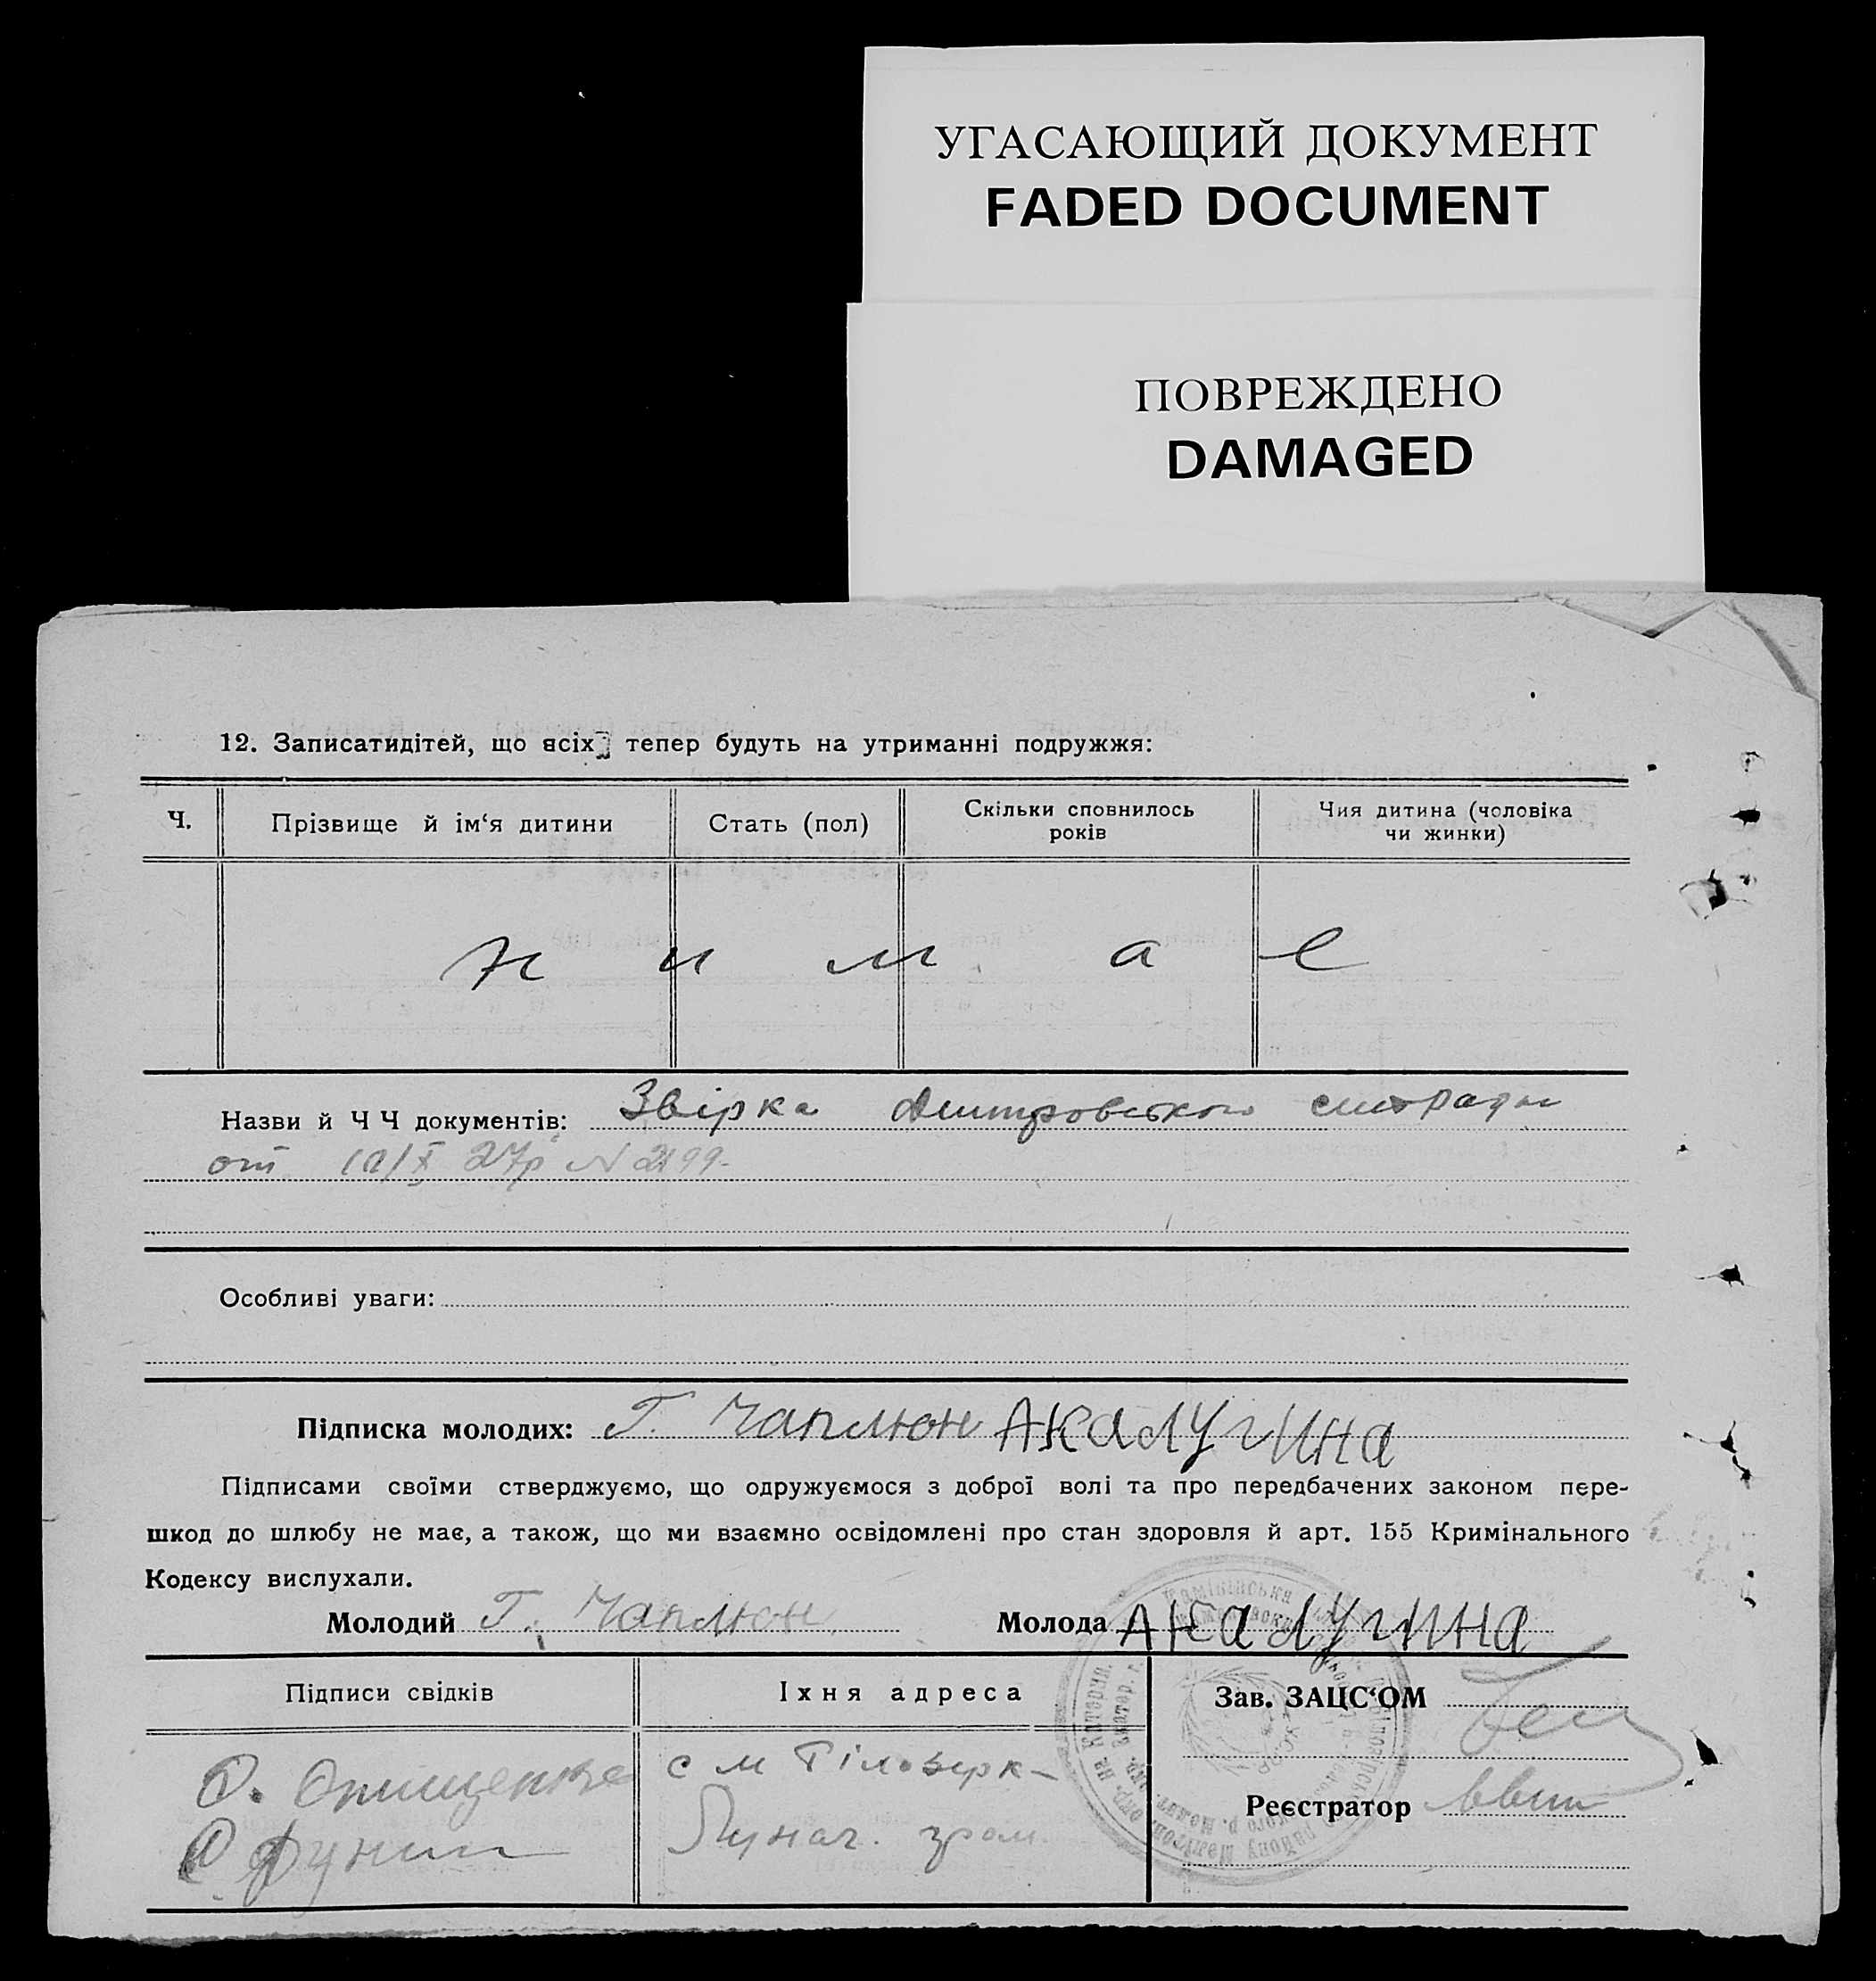 УГАСАЮЩИЙ ДОКУМЕНТ
FADED DOCUMENT
ПОВРЕЖДЕНО
DAMAGED
12. Записатидітей, що всіх тепер будуть на утриманні подружжя:
Ч. Прізвище й ім‘я дитини Стать (пол) Скільки сповнилось років Чия дитина (чоловіка чи жинки)
н и м а е
Назви й Ч Ч документів: Звірка
от 27р N 2199
Особливі уваги:
Підписка молодих: Г. Чаплюн АКалугина
Підписами своїми стверджуємо, що одружуємося з доброї волі та про передбачених законом пере-
шкод до шлюбу не має, а також, що ми взаємно освідомлені про стан здоровля й арт. 155 Кримінального
Кодексу вислухали.
Молодий Г. Чаплюн Молода АКалугина
Підписи свідків Їхня адреса Зав. ЗАЦС‘ОМ
О. Онищенко с м
Реєстратор